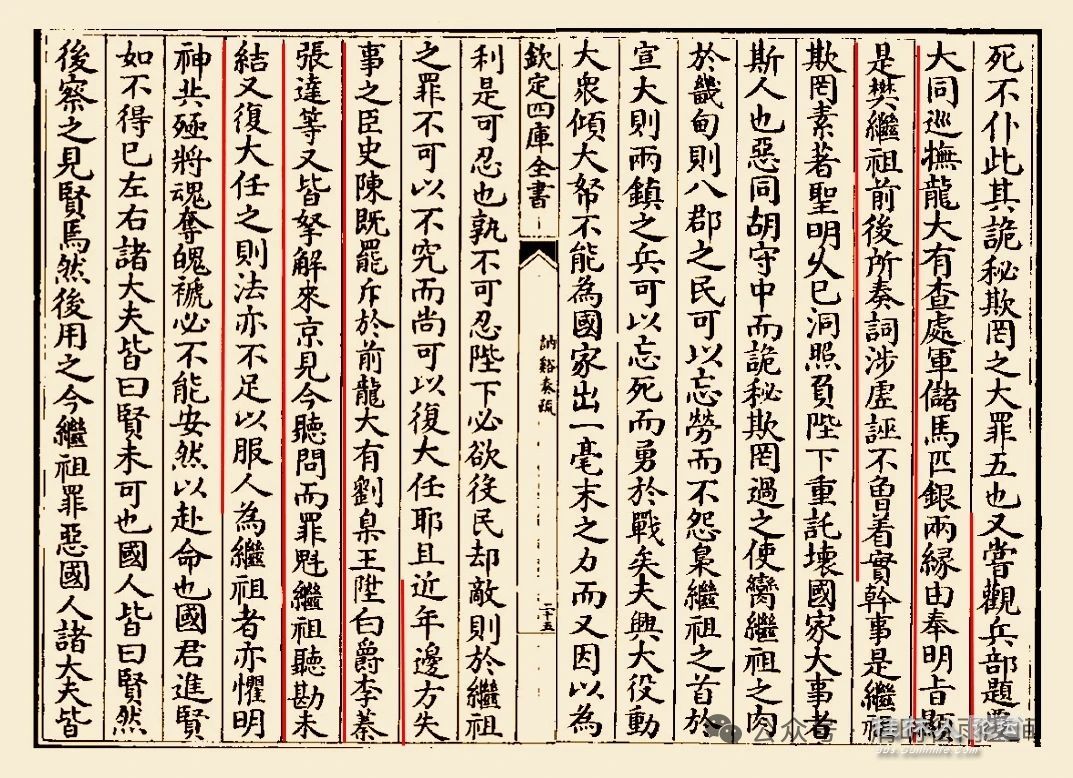 死不仆此其詭秘欺罔之大罪五也又嘗觀兵部題覆
大同巡撫龍大有查處軍儲馬匹銀兩縁由奉明㫖顯
是樊繼祖前後所奏詞涉虛誣不曾着實幹事是繼祖
欺罔素著聖明久已洞照負陛下重託壞國家大事者
斯人也惡同胡守中而詭秘欺罔過之使臠繼祖之肉
於畿甸則八郡之民可以忘勞而不怨梟繼祖之首於
宣大則兩鎮之兵可以忘死而勇於戰矣夫興大役動
大衆傾大帑不能為國家出一毫末之力而又因以為
欽定四庫全書
訥谿奏疏
二十五
利是可忍也孰不可忍陛下必欲役民却敵則於繼祖
之罪不可以不究而尚可以復大任耶且近年邊方失
事之臣史陳既罷斥於前龍大有劉臬王陞白爵李蓁
張達等又皆拏解來京見今聽問而罪魁繼祖聽勘未
結又復大任之則法亦不足以服人為繼祖者亦懼明
神共殛將魂奪魄褫必不能安然以赴命也國君進賢
如不得已左右諸大夫皆曰賢未可也國人皆曰賢然
後察之見賢焉然後用之今繼祖罪惡國人諸大夫皆
公众号